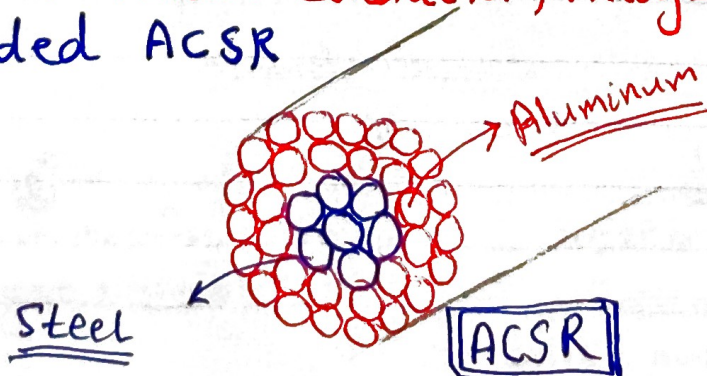 ACSR
Aluminum
Steel
ACSR